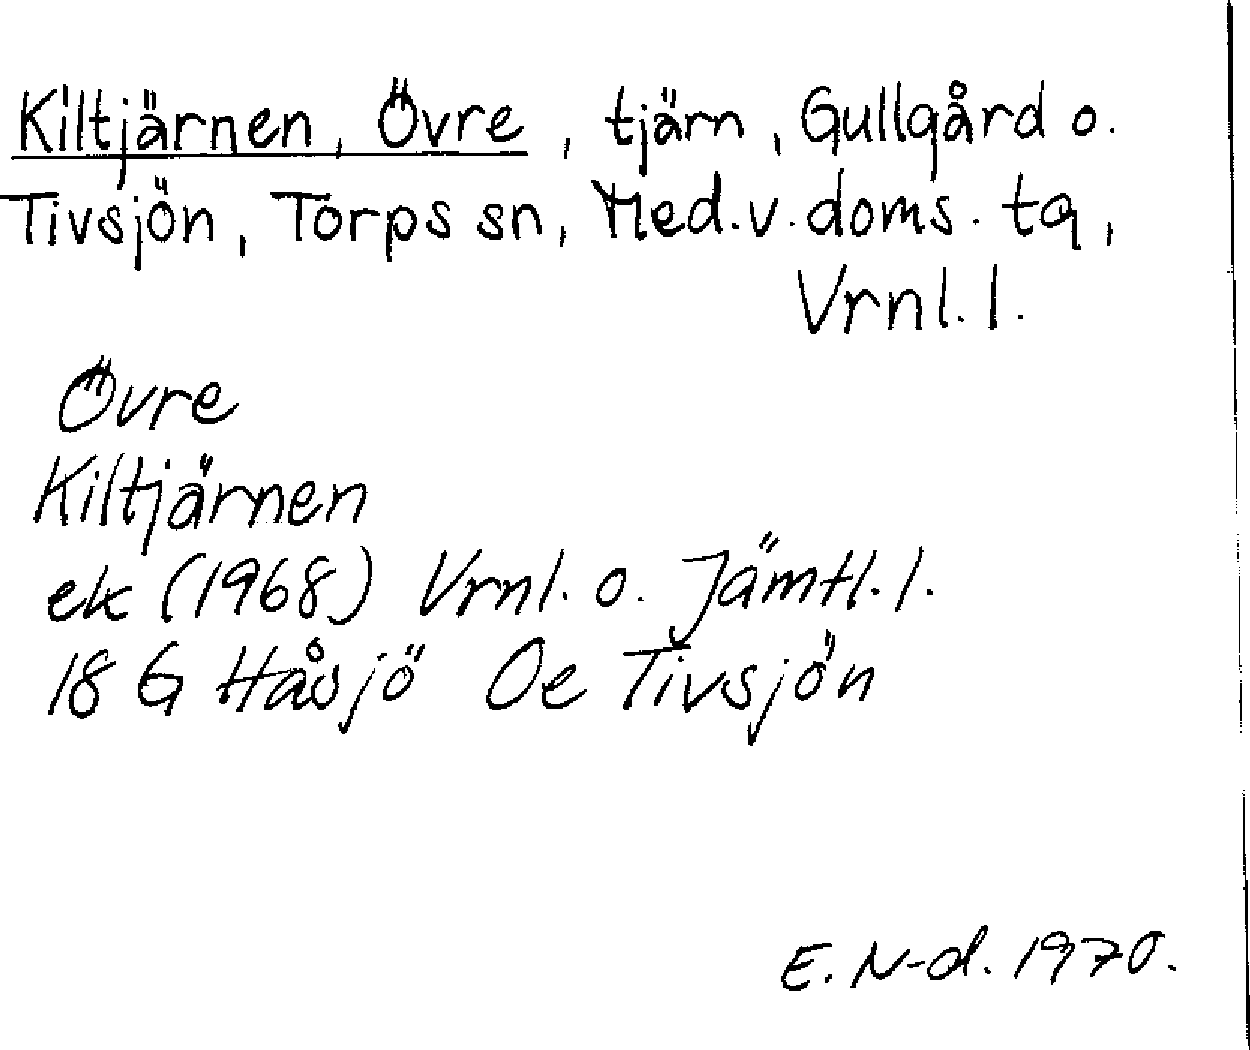 Kiltjärnen, Övre, tjärn, Gullgård o.
Tivsjön, Torps sn, Med. v. doms. tg,
Vrnl. l.
Övre
Kiltjärnen
ek (1968) Vrnl. o. Jämtl. l.
18 G Håsjö Oe Tivsjön
E. N-d. 1970.